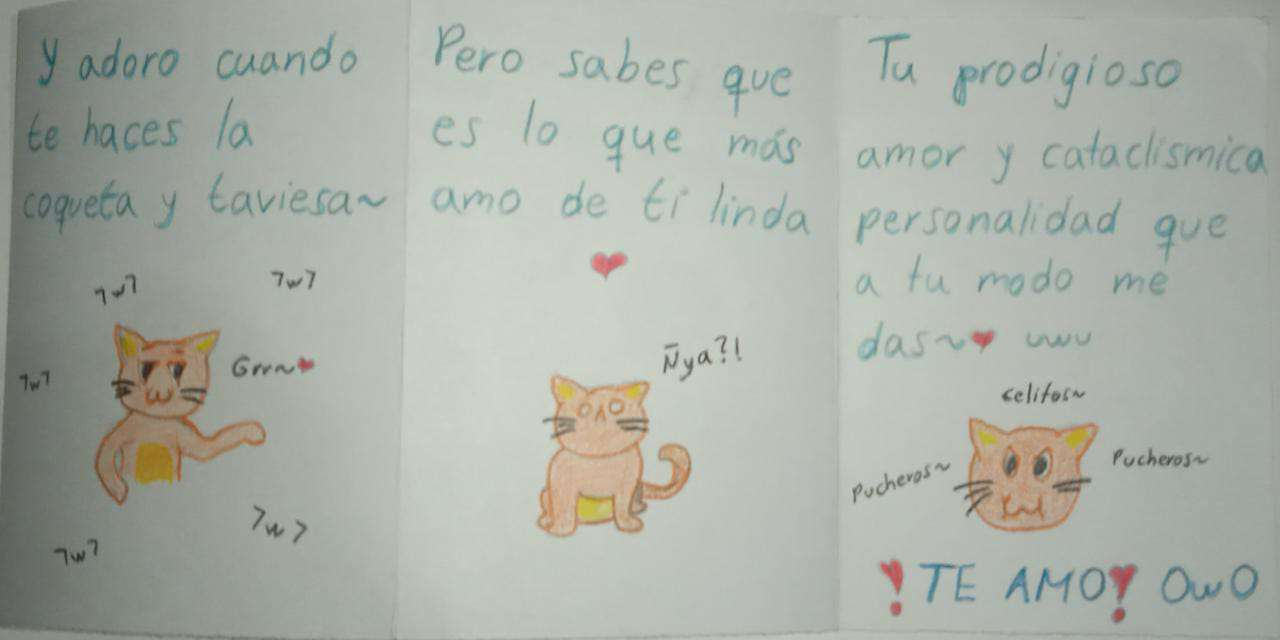 y adoro cuando
te haces la
coqueta y taviesa~
7w7
7w7
7w7
Grr~❤
7w7
7w7
Pero sabes que
es lo que más
amo de ti linda
❤
Ñya?!
Tu prodigioso
amor y cataclismica
personalidad que
a tu modo me
das~❤ uwu
celitos~
Pucheros~
Pucheros~
❣TE AMO❣ OwO